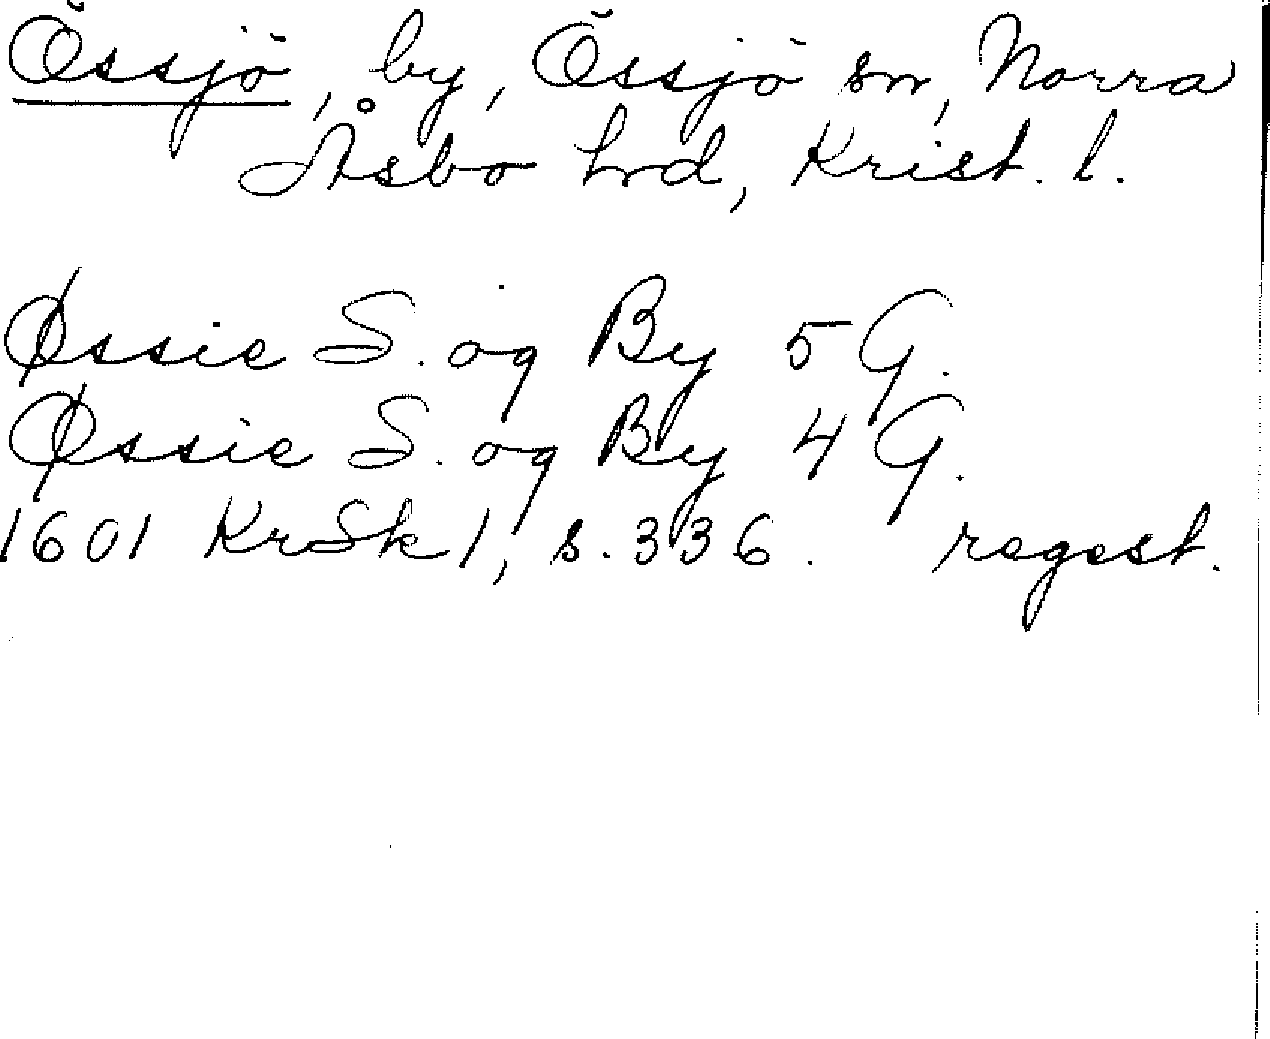 Össjö, by, Össjö sn, Norra
Åsbo hrd, Krist. l.
Øssie S. og By 5 G.
Øssie S. og By 4 G.
1601 KrSk 1, s. 336. regest.